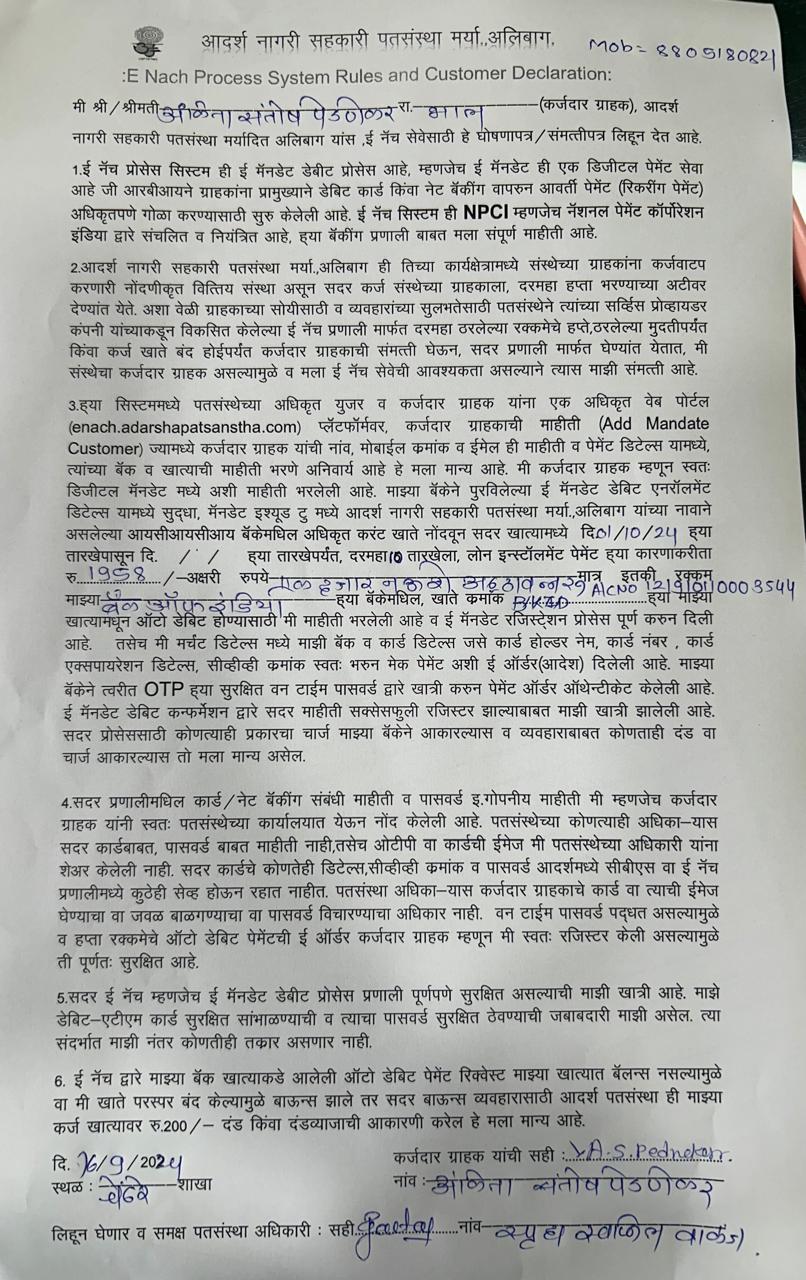 आदर्श नागरी सहकारी पतसंस्था मर्या.,अलिबाग.
Mob= 8805180821
:E Nach Process System Rules and Customer Declaration:
मी श्री/श्रीमती संतोष पेडणेकर रा. (कर्जदार ग्राहक), आदर्श
नागरी सहकारी पतसंस्था मर्यादित अलिबाग यांस ,ई नॅच सेवेसाठी हे घोषणापत्र/संमत्तीपत्र लिहून देत आहे.
1.ई नॅच प्रोसेस सिस्टम ही ई मॅनडेट डेबीट प्रोसेस आहे, म्हणजेच ई मॅनडेट ही एक डिजीटल पेमेंट सेवा
आहे जी आरबीआयने ग्राहकांना प्रामुख्याने डेबिट कार्ड किंवा नेट बॅकींग वापरुन आवर्ती पेमेंट (रिकरींग पेमेंट)
अधिकृतपणे गोळा करण्यासाठी सुरु केलेली आहे. ई नॅच सिस्टम ही NPCI म्हणजेच नॅशनल पेमेंट कॉर्पोरेशन
इंडिया द्वारे संचलित व नियंत्रित आहे, ह्या बॅकींग प्रणाली बाबत मला संपूर्ण माहीती आहे.
2.आदर्श नागरी सहकारी पतसंस्था मर्या.,अलिबाग ही तिच्या कार्यक्षेत्रामध्ये संस्थेच्या ग्राहकांना कर्जवाटप
करणारी नोंदणीकृत वित्तिय संस्था असून सदर कर्ज संस्थेच्या ग्राहकाला, दरमहा हप्ता भरण्याच्या अटीवर
देण्यांत येते. अशा वेळी ग्राहकाच्या सोयीसाठी व व्यवहारांच्या सुलभतेसाठी पतसंस्थेने त्यांच्या सर्व्हिस प्रोव्हायडर
कंपनी यांच्याकडून विकसित केलेल्या ई नॅच प्रणाली मार्फत दरमहा ठरलेल्या रक्कमेचे हप्ते,ठरलेल्या मुदतीपर्यंत
किंवा कर्ज खाते बंद होईपर्यंत कर्जदार ग्राहकाची संमत्ती घेऊन, सदर प्रणाली मार्फत घेण्यांत येतात, मी
संस्थेचा कर्जदार ग्राहक असल्यामुळे व मला ई नॅच सेवेची आवश्यकता असल्याने त्यास माझी संमत्ती आहे.
3.ह्या सिस्टममध्ये पतसंस्थेच्या अधिकृत युजर व कर्जदार ग्राहक यांना एक अधिकृत वेब पोर्टल
(enach.adarshapatsanstha.com) प्लॅटफॉर्मवर, कर्जदार ग्राहकाची माहीती (Add Mandate
Customer) ज्यामध्ये कर्जदार ग्राहक यांची नांव, मोबाईल क्रमांक व ईमेल ही माहीती व पेमेंट डिटेल्स यामध्ये,
त्यांच्या बॅक व खात्याची माहीती भरणे अनिवार्य आहे हे मला मान्य आहे. मी कर्जदार ग्राहक म्हणून स्वतः
डिजीटल मॅनडेट मध्ये अशी माहीती भरलेली आहे. माझ्या बॅकेने पुरविलेल्या ई मॅनडेट डेबिट एनरॉलमेंट
डिटेल्स यामध्ये सुद्धा, मॅनडेट इश्यूड टु मध्ये आदर्श नागरी सहकारी पतसंस्था मर्या.,अलिबाग यांच्या नावाने
असलेल्या आयसीआयसीआय बॅकेमधिल अधिकृत करंट खाते नोंदवून सदर खात्यामध्ये दि.01/10/24 ह्या
तारखेपासून दि. / / ह्या तारखेपर्यंत, दरमहा 10 तारखेला, लोन इन्स्टॉलमेंट पेमेंट ह्या कारणाकरीता
रु. 1958 /-अक्षरी रुपये एक हजार नऊशे अठ्ठावन्न मात्र इतकी रक्कम
माझ्या बँक ऑफ इंडिया ह्या बॅकेमधिल, खाते क्रमांक A/C NO 121910110003544 ह्या माझ्या
खात्यामधून ऑटो डेबिट होण्यासाठी मी माहीती भरलेली आहे व ई मॅनडेट रजिस्ट्रेशन प्रोसेस पूर्ण करुन दिली
आहे. तसेच मी मर्चंट डिटेल्स मध्ये माझी बॅक व कार्ड डिटेल्स जसे कार्ड होल्डर नेम, कार्ड नंबर , कार्ड
एक्सपायरेशन डिटेल्स, सीव्हीव्ही क्रमांक स्वतः भरुन मेक पेमेंट अशी ई ऑर्डर(आदेश) दिलेली आहे. माझ्या
बॅकेने त्वरीत OTP ह्या सुरक्षित वन टाईम पासवर्ड द्वारे खात्री करुन पेमेंट ऑर्डर ऑथेन्टीकेट केलेली आहे.
ई मॅनडेट डेबिट कन्फर्मेशन द्वारे सदर माहीती सक्सेसफुली रजिस्टर झाल्याबाबत माझी खात्री झालेली आहे.
सदर प्रोसेससाठी कोणत्याही प्रकारचा चार्ज माझ्या बॅकेने आकारल्यास व व्यवहाराबाबत कोणताही दंड वा
चार्ज आकारल्यास तो मला मान्य असेल.
4.सदर प्रणालीमधिल कार्ड/नेट बॅकींग संबंधी माहीती व पासवर्ड इ.गोपनीय माहीती मी म्हणजेच कर्जदार
ग्राहक यांनी स्वतः पतसंस्थेच्या कार्यालयात येऊन नोंद केलेली आहे. पतसंस्थेच्या कोणत्याही अधिका–यास
सदर कार्डबाबत, पासवर्ड बाबत माहीती नाही,तसेच ओटीपी वा कार्डची ईमेज मी पतसंस्थेच्या अधिकारी यांना
शेअर केलेली नाही. सदर कार्डचे कोणतेही डिटेल्स,सीव्हीव्ही क्रमांक व पासवर्ड आदर्शमध्ये सीबीएस वा ई नॅच
प्रणालीमध्ये कुठेही सेव्ह होऊन रहात नाहीत. पतसंस्था अधिका–यास कर्जदार ग्राहकाचे कार्ड वा त्याची ईमेज
घेण्याचा वा जवळ बाळगण्याचा वा पासवर्ड विचारण्याचा अधिकार नाही. वन टाईम पासवर्ड पद्धत असल्यामुळे
व हप्ता रक्कमेचे ऑटो डेबिट पेमेंटची ई ऑर्डर कर्जदार ग्राहक म्हणून मी स्वतः रजिस्टर केली असल्यामुळे
ती पूर्णतः सुरक्षित आहे.
5.सदर ई नॅच म्हणजेच ई मॅनडेट डेबीट प्रोसेस प्रणाली पूर्णपणे सुरक्षित असल्याची माझी खात्री आहे. माझे
डेबिट–एटीएम कार्ड सुरक्षित सांभाळण्याची व त्याचा पासवर्ड सुरक्षित ठेवण्याची जबाबदारी माझी असेल. त्या
संदर्भात माझी नंतर कोणतीही तक्रार असणार नाही.
6. ई नॅच द्वारे माझ्या बॅक खात्याकडे आलेली ऑटो डेबिट पेमेंट रिक्वेस्ट माझ्या खात्यात बॅलन्स नसल्यामुळे
वा मी खाते परस्पर बंद केल्यामुळे बाऊन्स झाले तर सदर बाऊन्स व्यवहारासाठी आदर्श पतसंस्था ही माझ्या
कर्ज खात्यावर रु.200/– दंड किंवा दंडव्याजाची आकारणी करेल हे मला मान्य आहे.
दि. 16/9/2024 कर्जदार ग्राहक यांची सही : A.S.Pednekar.
स्थळ : चेंढरे शाखा नांव : संतोष पेडणेकर
लिहून घेणार व समक्ष पतसंस्था अधिकारी : सही नांव स्पृहा स्वप्निल